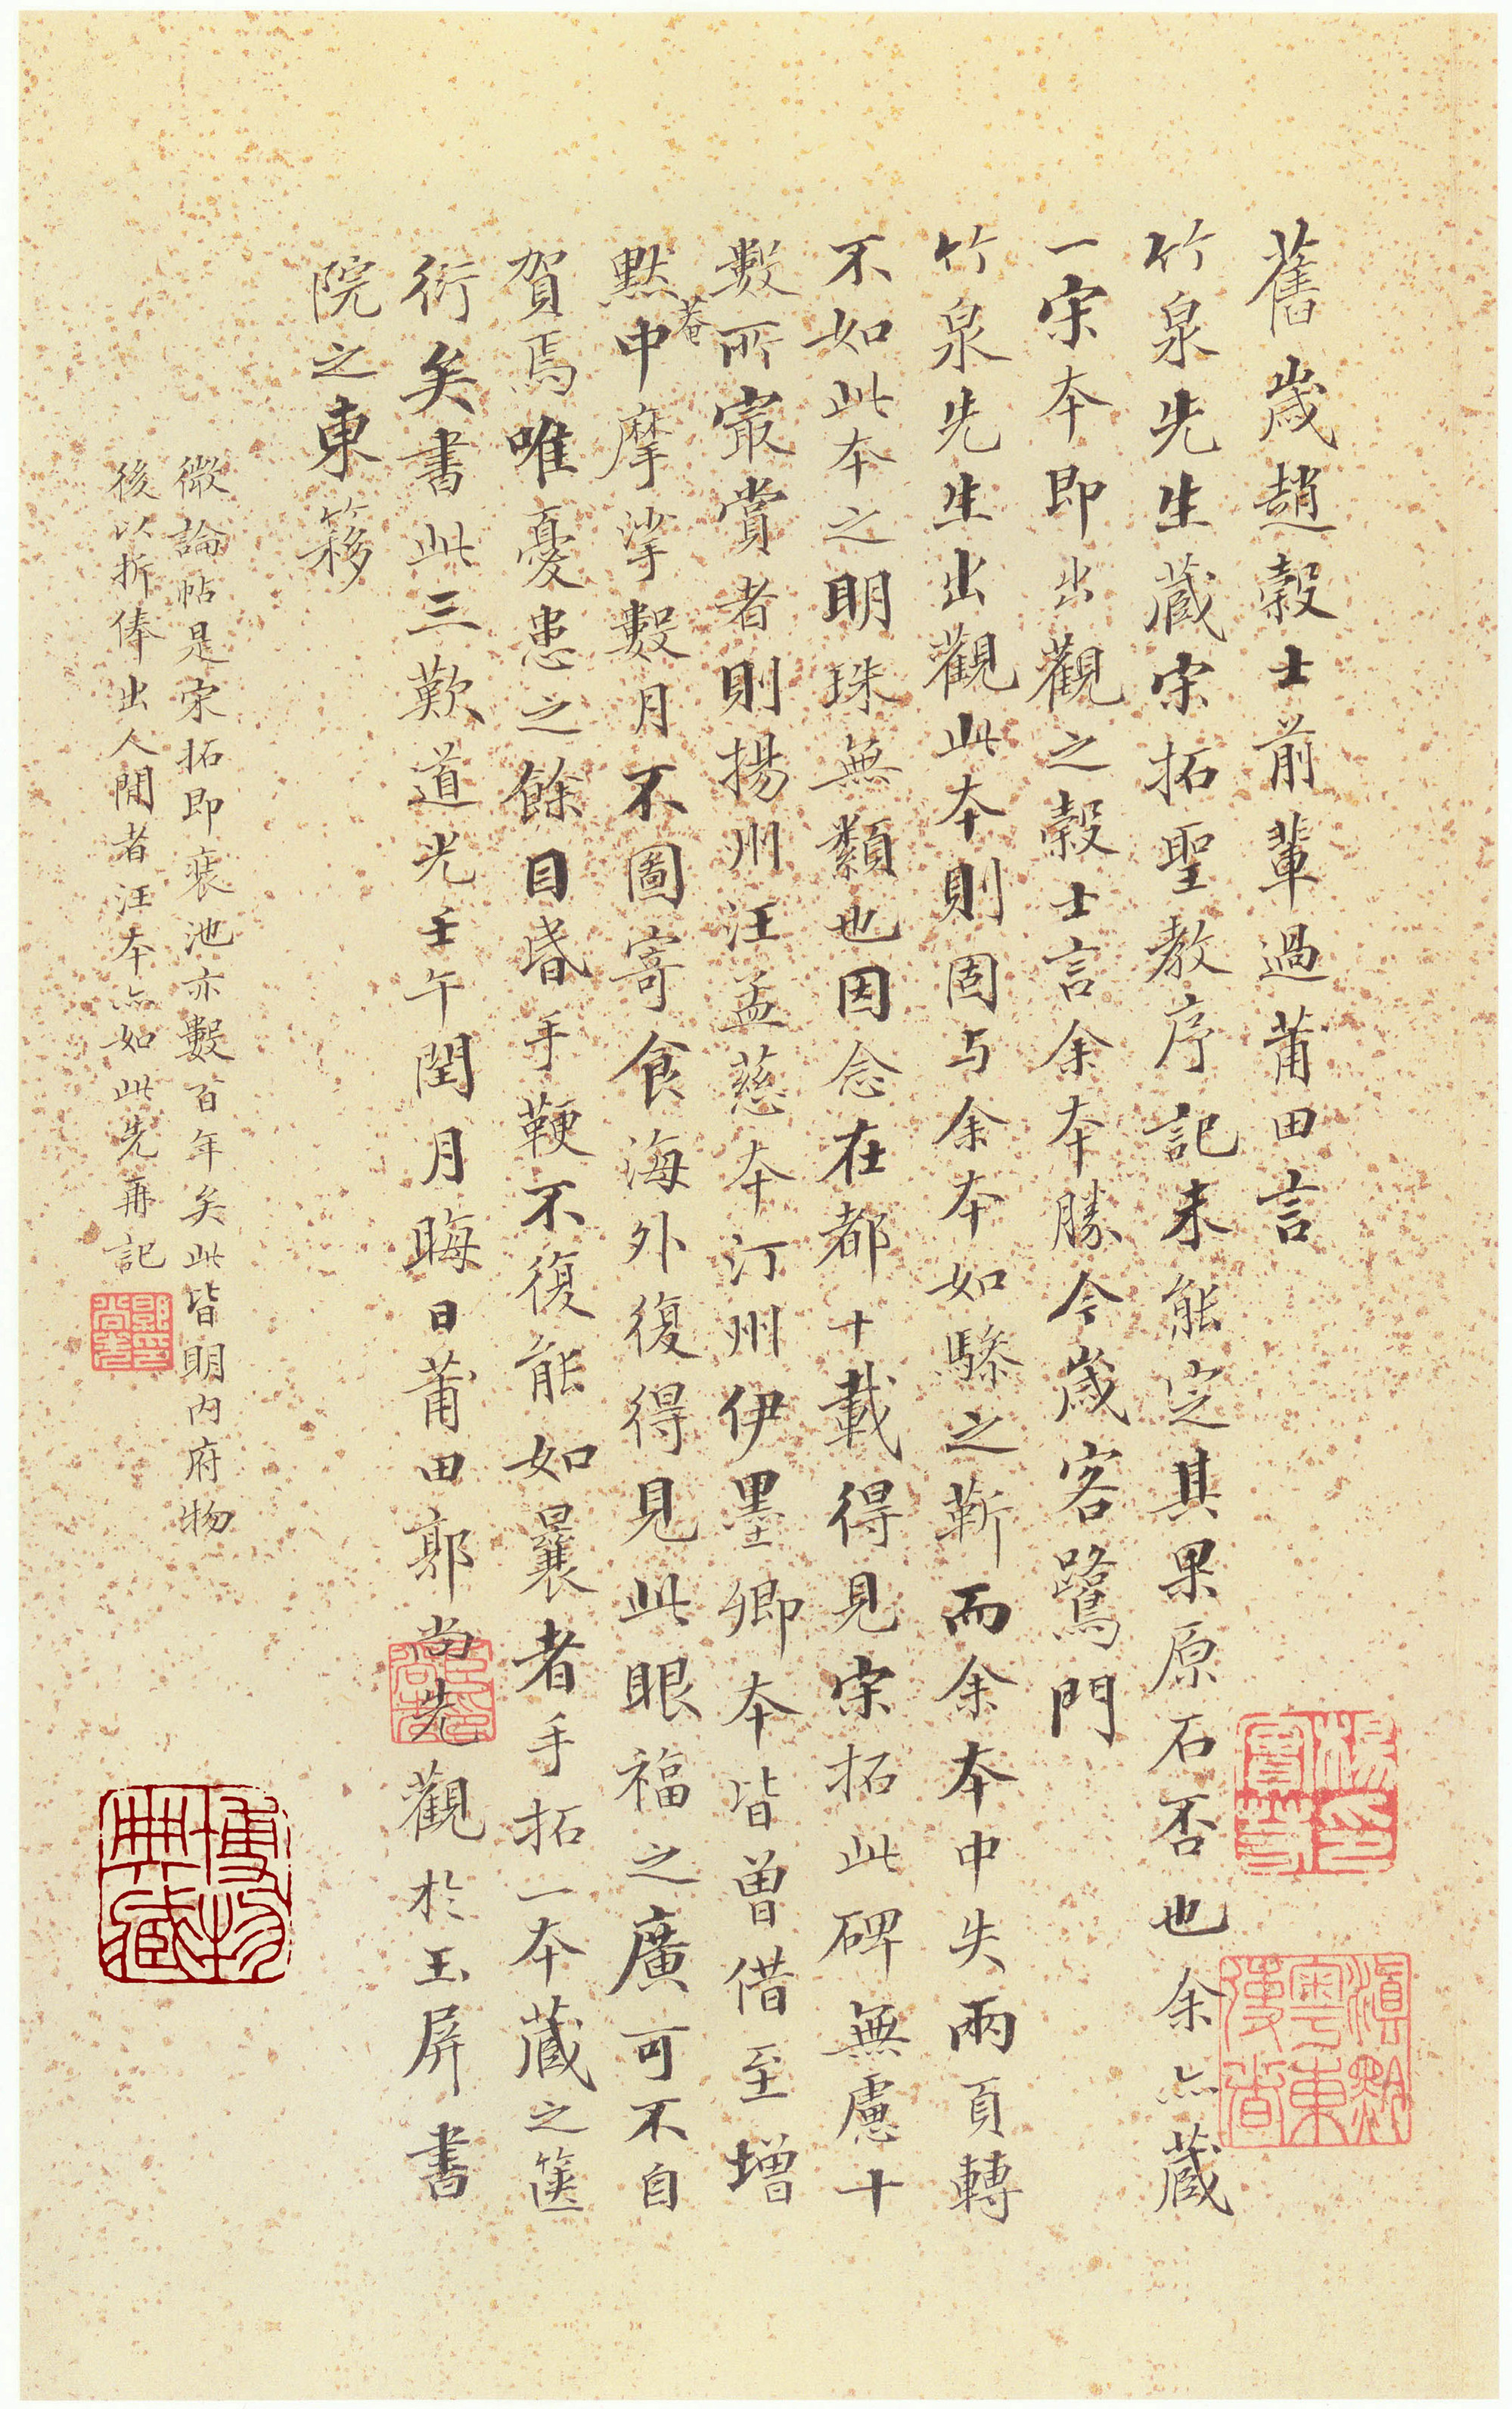 舊歲趙穀士前輩過莆田言
竹泉先生藏宋拓聖教序記未能定其果原石否也余亦藏
一宋本即出觀之穀士言余本勝今歲客鷺門
竹泉先生出觀此本則固与余本如驂之靳而余本中失兩頁轉
不如此本之明珠無纇也因念在都十載得見宋拓此碑無慮十
數所㝡賞者則揚州汪孟慈本汀州伊墨卿本皆曾借至增
默菴中摩挲數月不圖寄食海外復得見此眼福之廣可不自
賀焉唯憂患之餘目眊手鞕不復能如曩者手拓一本藏之篋
衍矣書此三歎道光壬午閏月晦日莆田郭尚先觀於玉屏書
院之東簃
微論帖是宋拓即裝池亦數百年矣此皆明內府物
後以折俸出人間者汪本亦如此先再記
博物
典藏